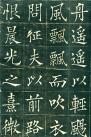 舟遙遙以輕颺
風飄飄而吹衣
問征夫以前路
恨晨光之熹微